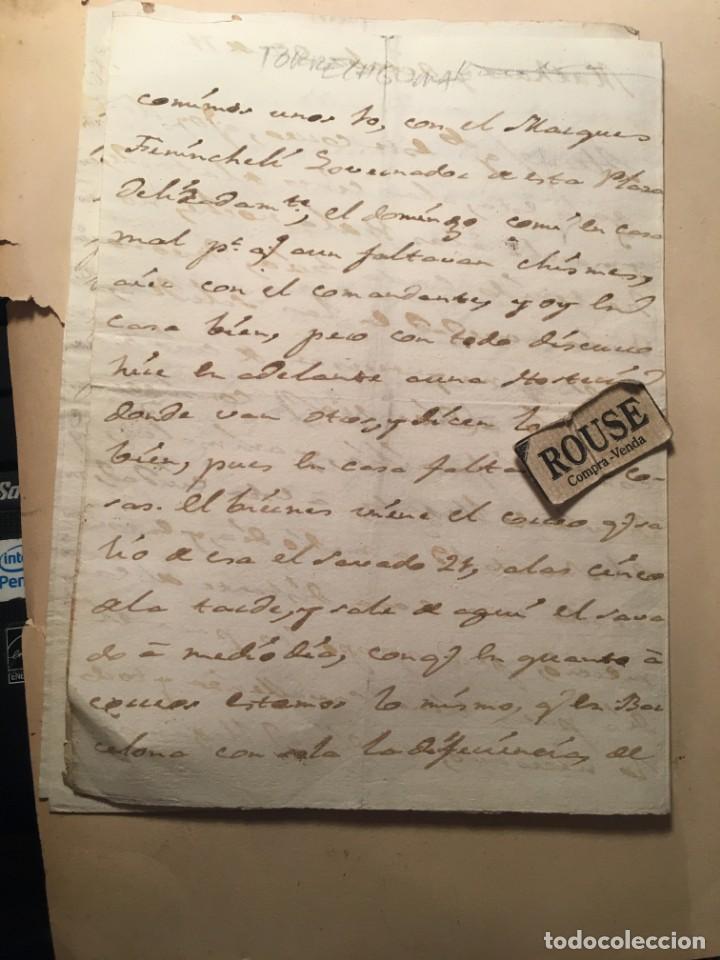 comimos unos 10, con el Marques
Governador de esta Plaza
Delicadam.te, el domingo comi en casa
mal p.r q.e aun faltavan chismes,
con el comandante, y oy en
casa bien, pero con todo discurro
hire en adelante a una Hosteria
donde van otros, y dicen lo
bien, pues en casa faltan co-
sas. El biernes viene el correo q.e sa
lio de esa el savado 21, a las cinco
de la tarde, y sale de aqui el sava
do â medio dia, conq.e en quanto â
correos estamos lo mismo, q.e en Bar
celona con sola la diferiencia, de
ROUSE
Compra-Venda
inte
Pen
todocoleccion.net